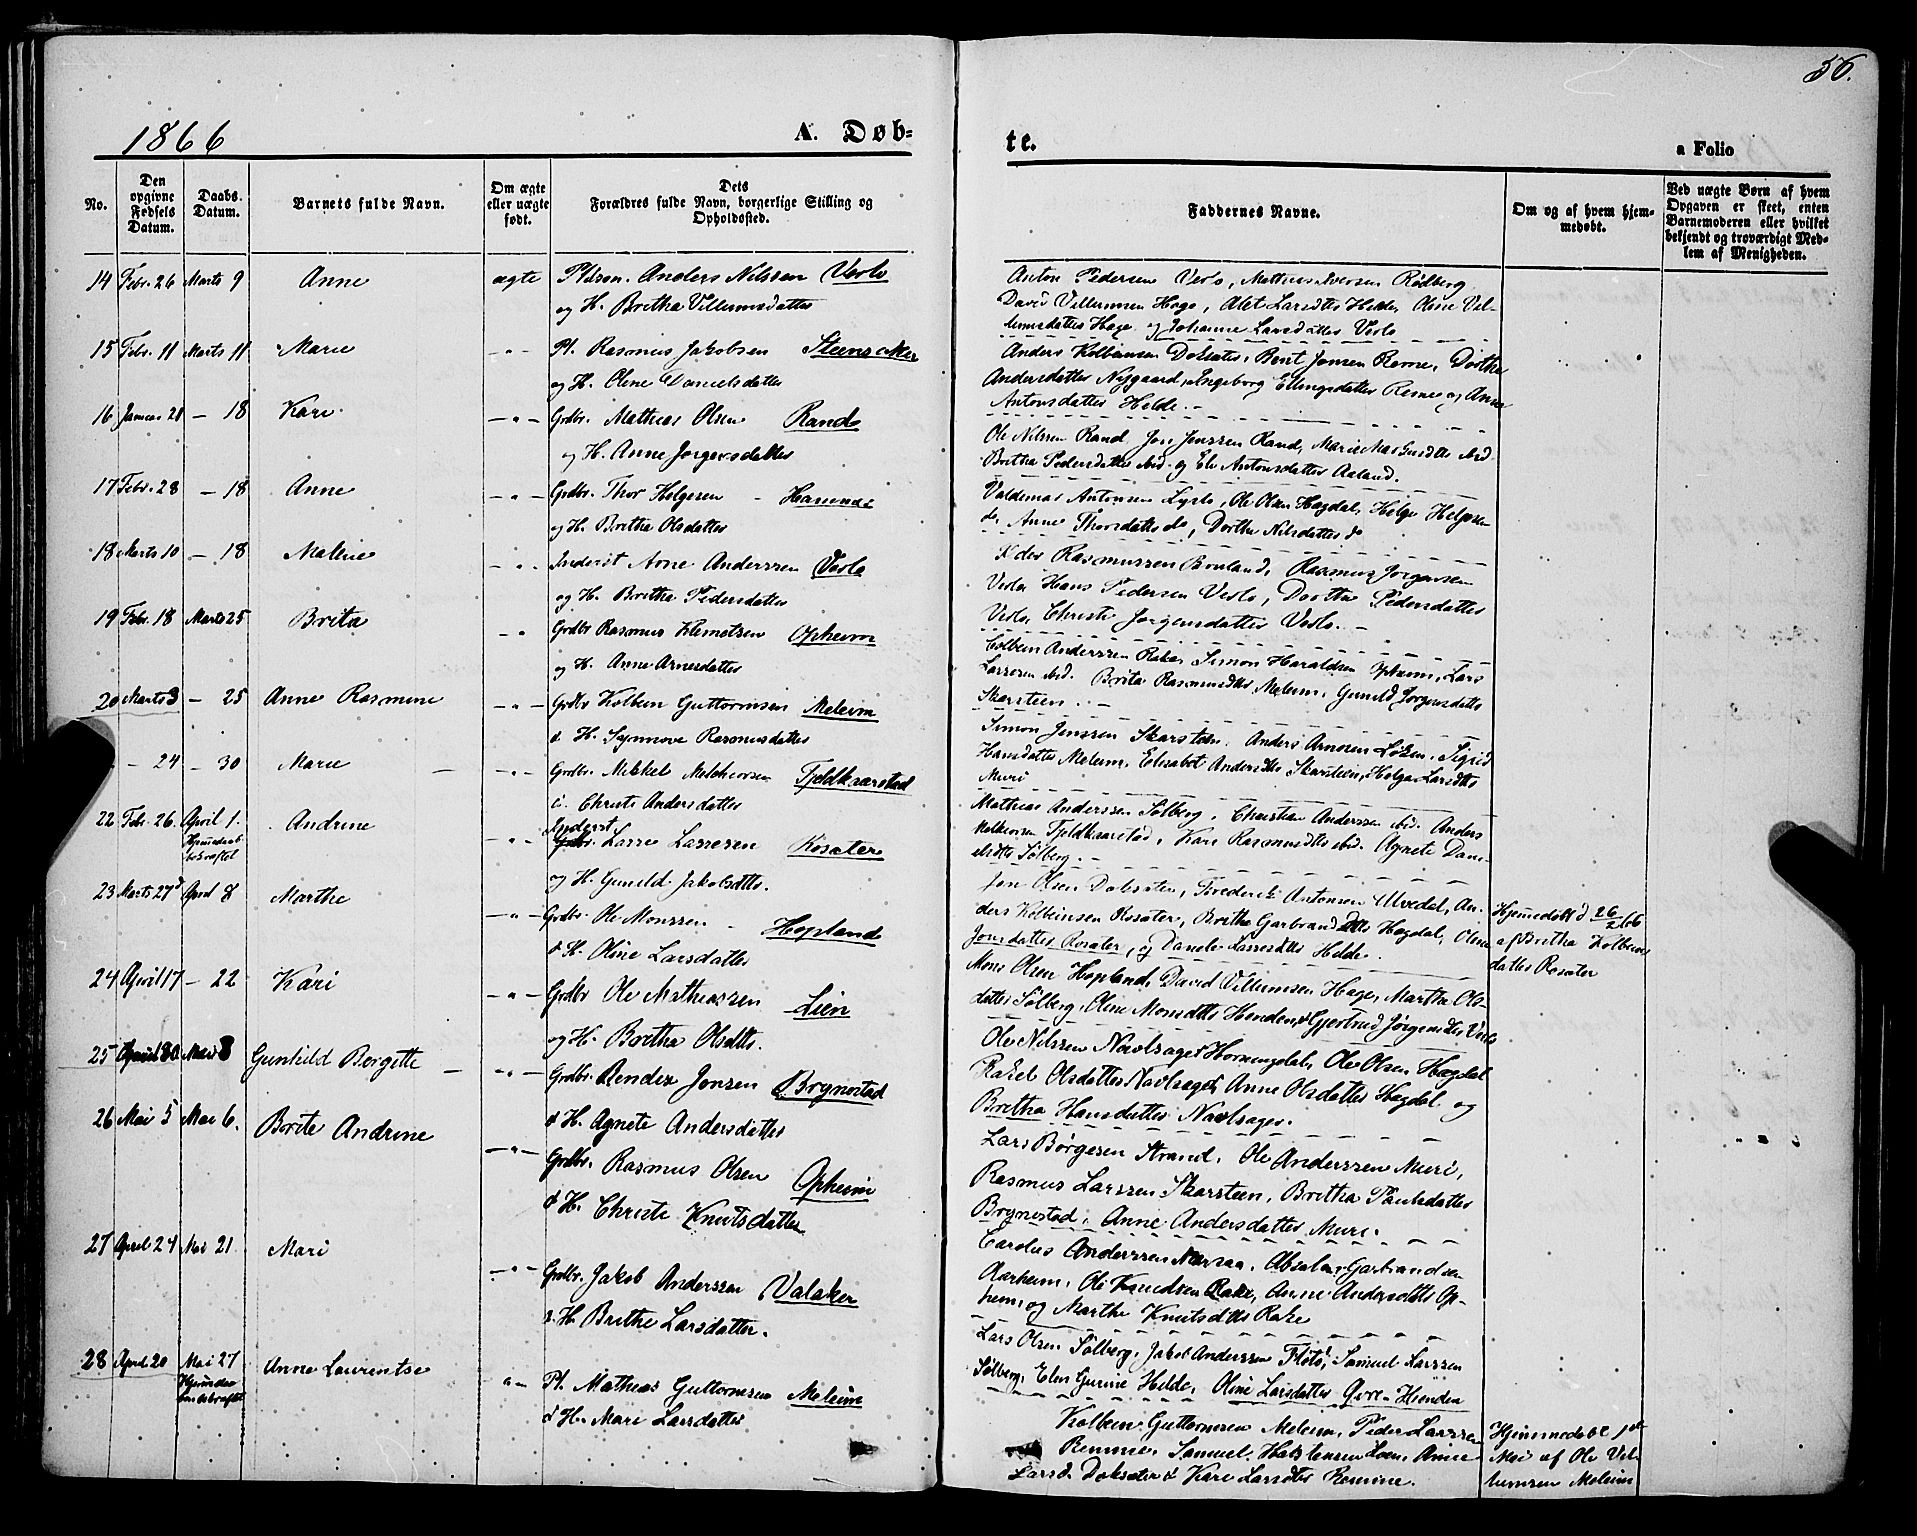 56.
1866
A. Døb-
te.
a Folio
No.
Den opgivne Fødsels Datum.
Daabs. Datum.
Barnets fulde Navn.
Om ægte eller uægte født.
Dets Forældres fulde Navn, borgerlige Stilling og Opholdssted.
Faddernes Navne.
Om og af hvem hjem-
medøbt.
Ved uægte Børn af hvem
Opgaven er skeet, enten
Barnemoderen eller hvilket
bekjendt og troværdigt Med-
lem af Menigheden.
14 Febr. 26 Marts 9 Anne ægte Anders Nilssen Veslo
og H. Brethe Villumsdatter
Anton Pedersen Veslo, Mathias Iversen Rødberg
David Villumsen Hage, Alet Larsdtr Helde, Oline Vil-
lumsdatter Hage og Johanne Larsdatter Veslo
15 Febr. 11 Marts 11 Marie Pl. Rasmus Jakobsen Steensaker
og H. Oline Danielsdatter
Anders Kolbeinsen Doksater, Bent Jonsen Reme, Dorthe
Andersdatter Nygaard, Ingeborg Ellingsdatter Reme og Anne
Antonsdatter Helde.
16 Januar 21 - 18 Kari Grdbr. Mathias Olsen Rand
og H. Anne Jørgensdatter
Ole Nilssen Rand, Jon Jonssen Rand, Marie ibid.
Brethe Pedersdatter ibid. og Eli Antonsdatter Aaland.
17 Febr. 28 - 18 Anne Grdbr. Thor Helgesen
og H. Brethe Olsdatter
Valdemar Antonsen Lyslo, Ole Olsen Hægdal, Helge Helgesen
do, Anne Thorsdatter do, Dorthe Nilsdatter do
18 Marts 10 - 18 Malene Inderst Arne Anderssen Veslo
og H. Brethe Pedersdatter
Peder Rasmussen Bruland, Rasmus Jørgensen
Veslo, Hans Pedersen Veslo, Dorthe Pedersdatter
Veslo, Christi Jørgensdatter Veslo.
19 Febr. 18 Marts 25 Brita Grdbr Rasmus Klemetsen Opheim
og H. Anne Arnesdatter
Colbein Anderssen Rake, Simon Haraldsen Opheim, Lars
Larssen ibid. Brita Rasmusdtr Meleim, Gunild Jørgensdatter
Skarsteen.
20 Marts 3 - 25 Anne Rasmine Grdbr Kolbein Guttormsen Meleim
& H. Synnøve Rasmusdatter
Simon Jenssen Skarsteen, Anders Arnesen Løken, Sigrid
Hansdatter Meleim, Elisabet Andersdtr Skarsteen, Helga Larsdtr
Muri
- 24 - 30 Marie Grdbr. Mikkel Melchiorsen Fjeldkaarstad
Christi Andersdatter
Mathias Anderssen Sølberg, Christian Anderssen ibid. Anders
Melkiorsen Fjeldkaarstad, Kari Rasmusdtr ibid. Agnete Dani-
elsdtr Sølberg.
22 Febr. 26 April 1. Andrine Inderst
Lasse Lassesen Rosæter
Hjemmedaab
bekræftet
og H. Gunild Jakobsdtr.
Jon Olsen Doksæter, Frederik Antonsen Ulvedal, An-
ders Kolbeinsen Rosæter, Brithe Garbrandsdtr Hægdal, Oline
Jonsdatter Rosæter, og Danele Lassesdtr Helde.
Hjemmedøbt d 26/2 66
af Brithe Kolbeins
datter Rosæter
23 Marts 27 April 8 Marthe Grdbr. Ole Monssen Hopland
& H. Oline Larsdatter
Mons Olsen Hopland, David Villumsen Hage, Martha Ols-
datter Sølberg, Oline Monsdtr Henden & Gjertrud Jørgensdtr Veslo
24 April 17 - 22 Kari Grdbr Ole Mathiassen Lien
og H. Brethe Olsdtr.
Ole Nilssen Navlsager Horningdal, Ole Olsen Hægdal
Rakel Olsdatter Navlsager, Anne Olsdatter Hægdal og
Bretha Hansdatter Navlsager.
25 April 30 Mai 3 Gunhild Borgette Grdbr. Jonsen Brynestad
& H. Agnete Andersdatter
Lars Børgesen Strand, Ole Anderssen Muri,
Rasmus Larssen Skarsteen, Bretha Paulsdatter
Brynestad, Anne Andersdatter Muri.
26 Mai 5 Mai 6. Brite Andrine Grdbr. Rasmus Olsen Opheim
& H. Christi Knutsdatter
Carolus Anderssen, Absalon Garbrandsen
Aarheim, Ole Knudsen Rake, Anne Andersdtr Op-
heim, og Marthe Knutsdtr Rake
27 April 24 Mai 21 Mari Grdbr. Jakob Anderssen Valaker
& H Brithe Larsdatter.
Lars Olsen Sølberg, Jakob Anderssen Floto, Samuel Larssen
Sølberg, Elen Gurine Helde, Oline Larsdatter Øvre-Henden
28 April 20 Mai 27 Anne Laurentse Pl. Mathias Guttormsen Meleim
& H. Mari Larsdatter
Kolbein Guttormsen Meleim, Peder Larssen
Remme, Samuel Loen, Anne
Larsd. Doksæter & Kari Larsdtr Remme.
Hjemmedøbt 1ste
Mai af Ole Vil-
lumsen Meleim